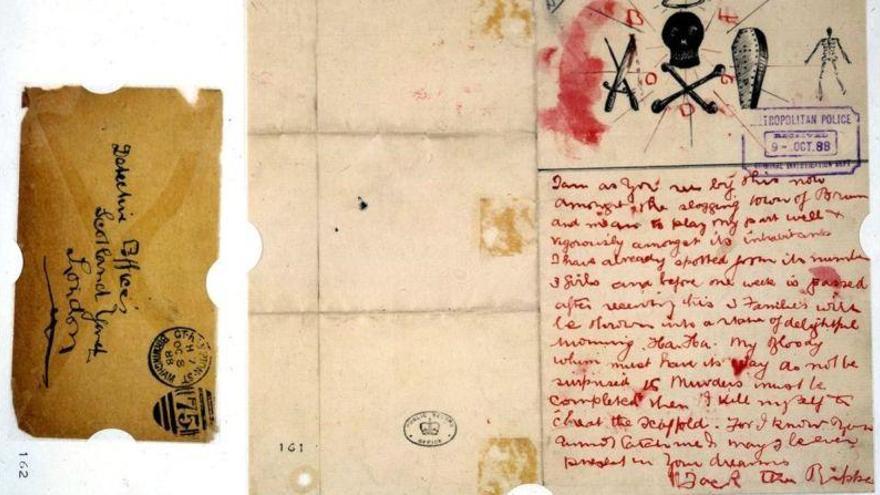 Detective Officer
Scotland Yard
London
BIRMINGHAM
OC 8
88
75
162
161
PUBLIC RECORD
OFFICE
METROPOLITAN POLICE
RECEIVED
9 - OCT. 88
CRIMINAL INVESTIGATION DEPT
I am as you see by this now
amongst the slogging town of Brum
and mean to play my part well &
vigorously amongst its inhabitants
I have already spotted from its number
3 girls and before one week is passed
after receiving this 3 Families will
be thrown into a state of delightful
mourning. Ha. Ha. My bloody
whim must have its way do not be
surprised 15 Murders must be
completed then I kill myself to
cheat the scaffold. For I know you
cannot catch me & I may be even
present in your dreams
Jack the Ripper